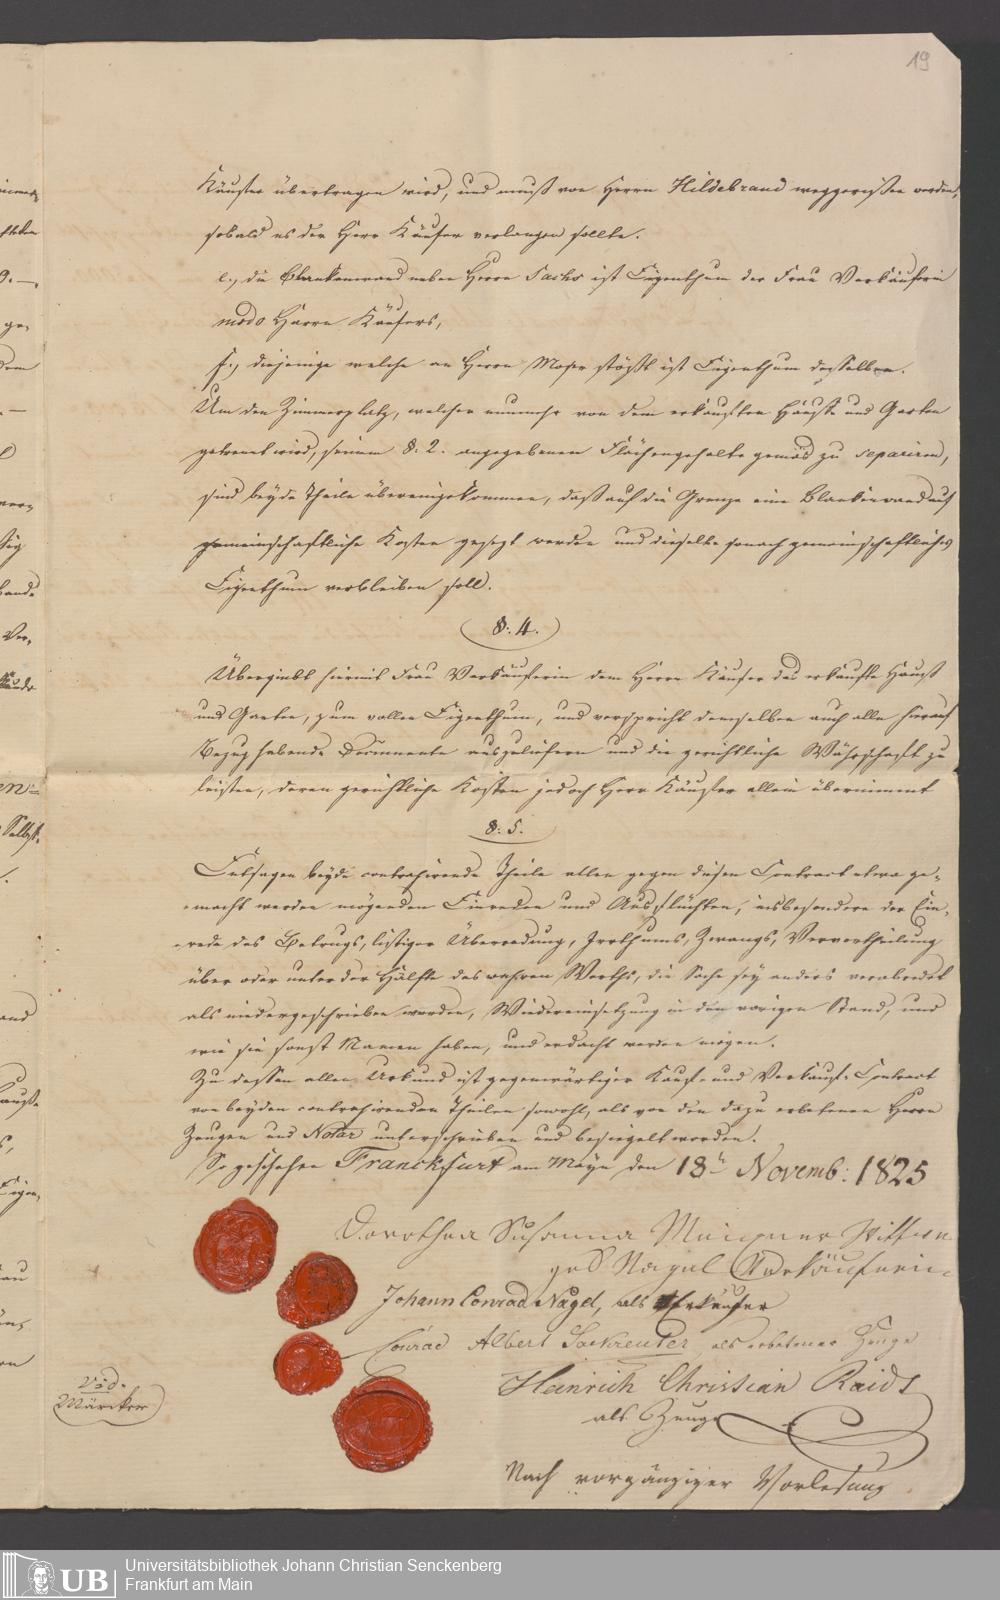 19
Käufer übertragen wird, und muß von Herrn Hildebrand weggerissen werden,
sobald es der Herr Käufer verlangen sollte.
e., die Blankenwand neben Herrn Sachs ist Eigenthum der Frau Verkäuferin
modo Herrn Käufers,
f., diejenige welche an Herrn Moser stößt ist Eigenthum desselben.
Um den Zimmerplatz, welcher nunmehr von dem erkauften Hauße und Garten
getrennt wird, seinem §. 2. angegebenen Flächengehalte gemäs zu separiren,
sind beyde Theile übereingekommen, daß auf die Grenze eine Blankenwand auf
gemeinschaftliche Kosten gesezt werden und dieselbe sonach gemeinschaftliches
Eigenthum verbleiben soll.
§. 4.
Übergiebt hiermit Frau Verkäuferin dem Herrn Käufer das erkaufte Hauß
und Garten, zum vollen Eigenthum, und verspricht demselben auch alle hierauf
Bezug habende Documente auszuliefern und die gerichtliche Währschaft zu
leisten, deren gerichtliche Kosten jedoch Herr Käufer allein übernimmt
§. 5.
Entsagen beyde contrahirende Theile allen gegen diesen Contract etwa ge-
macht werden mögenden Einreden und Ausflüchten, insbesondere der Ein-
rede des Betrugs, listiger Überredung, Irrthums, Zwangs, Vervortheilung
über oder unter der Hälfte des wahren Werths, die Sache sey anders verabredet
als niedergeschrieben worden, Wiedereinsetzung in den vorigen Stand, und
wie sie sonst Namen haben, und erdacht werden mögen.
Zu dessen allen Urkund ist gegenwärtiger Kauf- und Verkauf-Contract
von beyden contrahirenden Theilen sowohl, als von den dazu erbetenen Herrn
Zeugen und Notar unterschrieben und besiegelt worden.
So geschehen Franckfurt am Mayn den 18n Novemb: 1825
Dorothea Susanna Wittwe
geb Nagel Verkäuferin
Johann Conrad Nagel, als Erkäufer
Conrad Albert als erbetener Zeuge
Heinrich Christian
als Zeuge
Vid.
Märcker
Nach vorgängiger Vorlesung
UB
Universitätsbibliothek Johann Christian Senckenberg
Frankfurt am Main